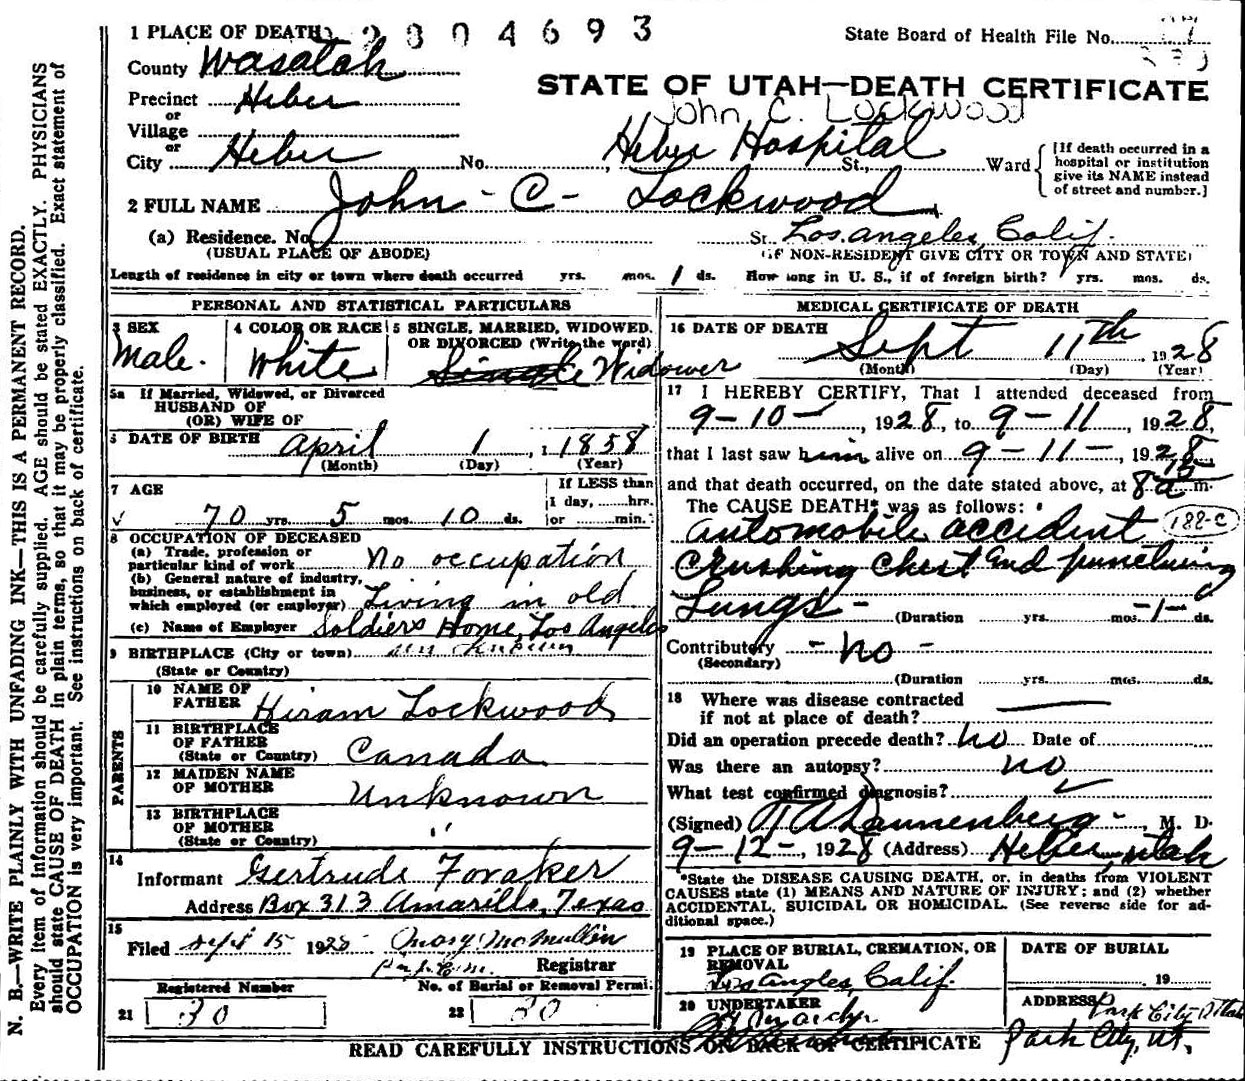 1 PLACE OF DEATH 2804693
State Board of Health File No.
County Wasatch
STATE OF UTAH—DEATH CERTIFICATE
Precinct Heber
John C. Lockwood
or
Village
or
City Heber No. Heber Hospital St., Ward
[If death occurred in a
hospital or institution
give its NAME instead
of street and number.]
2 FULL NAME John - C - Lockwood
(a) Residence. No. St. Los Angeles, Calif.
(USUAL PLACE OF ABODE) (IF NON-RESIDENT GIVE CITY OR TOWN AND STATE)
Length of residence in city or town where death occurred yrs. mos. 1 ds. How long in U. S., if of foreign birth? yrs. mos. ds.
PERSONAL AND STATISTICAL PARTICULARS
3 SEX
Male.
4 COLOR OR RACE
White
5 SINGLE, MARRIED, WIDOWED,
OR DIVORCED (Write the word)
Single Widower
5a If Married, Widowed, or Divorced
HUSBAND OF
(OR) WIFE OF
6 DATE OF BIRTH April 1, 1858
(Month) (Day) (Year)
7 AGE
70 yrs. 5 mos. 10 ds.
If LESS than
1 day, hrs.
or min.
8 OCCUPATION OF DECEASED
(a) Trade, profession or
particular kind of work No occupation
(b) General nature of industry,
business, or establishment in
which employed (or employer) Living in old
(c) Name of Employer Soldiers Home, Los Angeles
9 BIRTHPLACE (City or town)
(State or Country)
PARENTS
10 NAME OF
FATHER Hiram Lockwood
11 BIRTHPLACE
OF FATHER
(State or Country) Canada
12 MAIDEN NAME
OF MOTHER Unknown
13 BIRTHPLACE
OF MOTHER "
(State or Country)
14
Informant Gertrude Foraker
Address Box 313 Amarillo, Texas
15
Filed Sept 15 1928 Mary McMullin
Registrar
Registered Number No. of Burial or Removal Permit
21 30 22 30
MEDICAL CERTIFICATE OF DEATH
16 DATE OF DEATH
Sept 11th, 1928
(Month) (Day) (Year)
17 I HEREBY CERTIFY, That I attended deceased from
9-10-, 1928, to 9-11, 1928,
that I last saw him alive on 9-11-, 1928,
and that death occurred, on the date stated above, at 8 15 a m.
The CAUSE DEATH* was as follows:
automobile accident 188-c
Crushing Chest and puncturing
Lungs - (Duration yrs. mos. -1- ds.
Contributory - no -
(Secondary)
(Duration yrs. mos. ds.
18 Where was disease contracted
if not at place of death?
Did an operation precede death? no Date of
Was there an autopsy? no
What test confirmed diagnosis?
(Signed) T A Dannenberg - M. D.
9-12-, 1928 (Address) Heber, Utah
*State the DISEASE CAUSING DEATH, or, in deaths from VIOLENT
CAUSES state (1) MEANS AND NATURE OF INJURY; and (2) whether
ACCIDENTAL, SUICIDAL OR HOMICIDAL. (See reverse side for ad-
ditional space.)
19 PLACE OF BURIAL, CREMATION, OR
REMOVAL
Los Angles, Calif.
DATE OF BURIAL
19
20 UNDERTAKER
ADDRESS Park City Utah
Park City, Ut.
READ CAREFULLY INSTRUCTIONS ON BACK OF CERTIFICATE
N. B.—WRITE PLAINLY WITH UNFADING INK—THIS IS A PERMANENT RECORD.
Every item of information should be carefully supplied. AGE should be stated EXACTLY. PHYSICIANS
should state CAUSE OF DEATH in plain terms, so that it may be properly classified. Exact statement of
OCCUPATION is very important. See instructions on back of certificate.